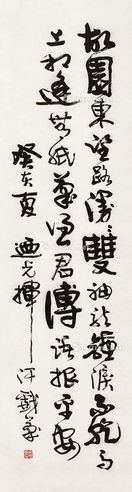 故園東望路漫漫雙袖龍鍾淚不乾馬
上相逢無紙筆憑君傳語報平安
癸亥夏 揮汗戲筆